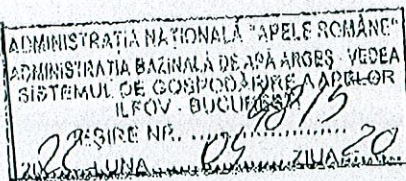 ADMINISTRAȚIA NAȚIONALĂ "APELE ROMÂNE"
ADMINISTRAȚIA BAZINALĂ DE APĂ ARGEȘ - VEDEA
SISTEMUL DE GOSPODĂRIRE A APELOR
ILFOV - BUCUREȘTI
IEȘIRE NR. 4815
2022 LUNA 05 ZIUA 20